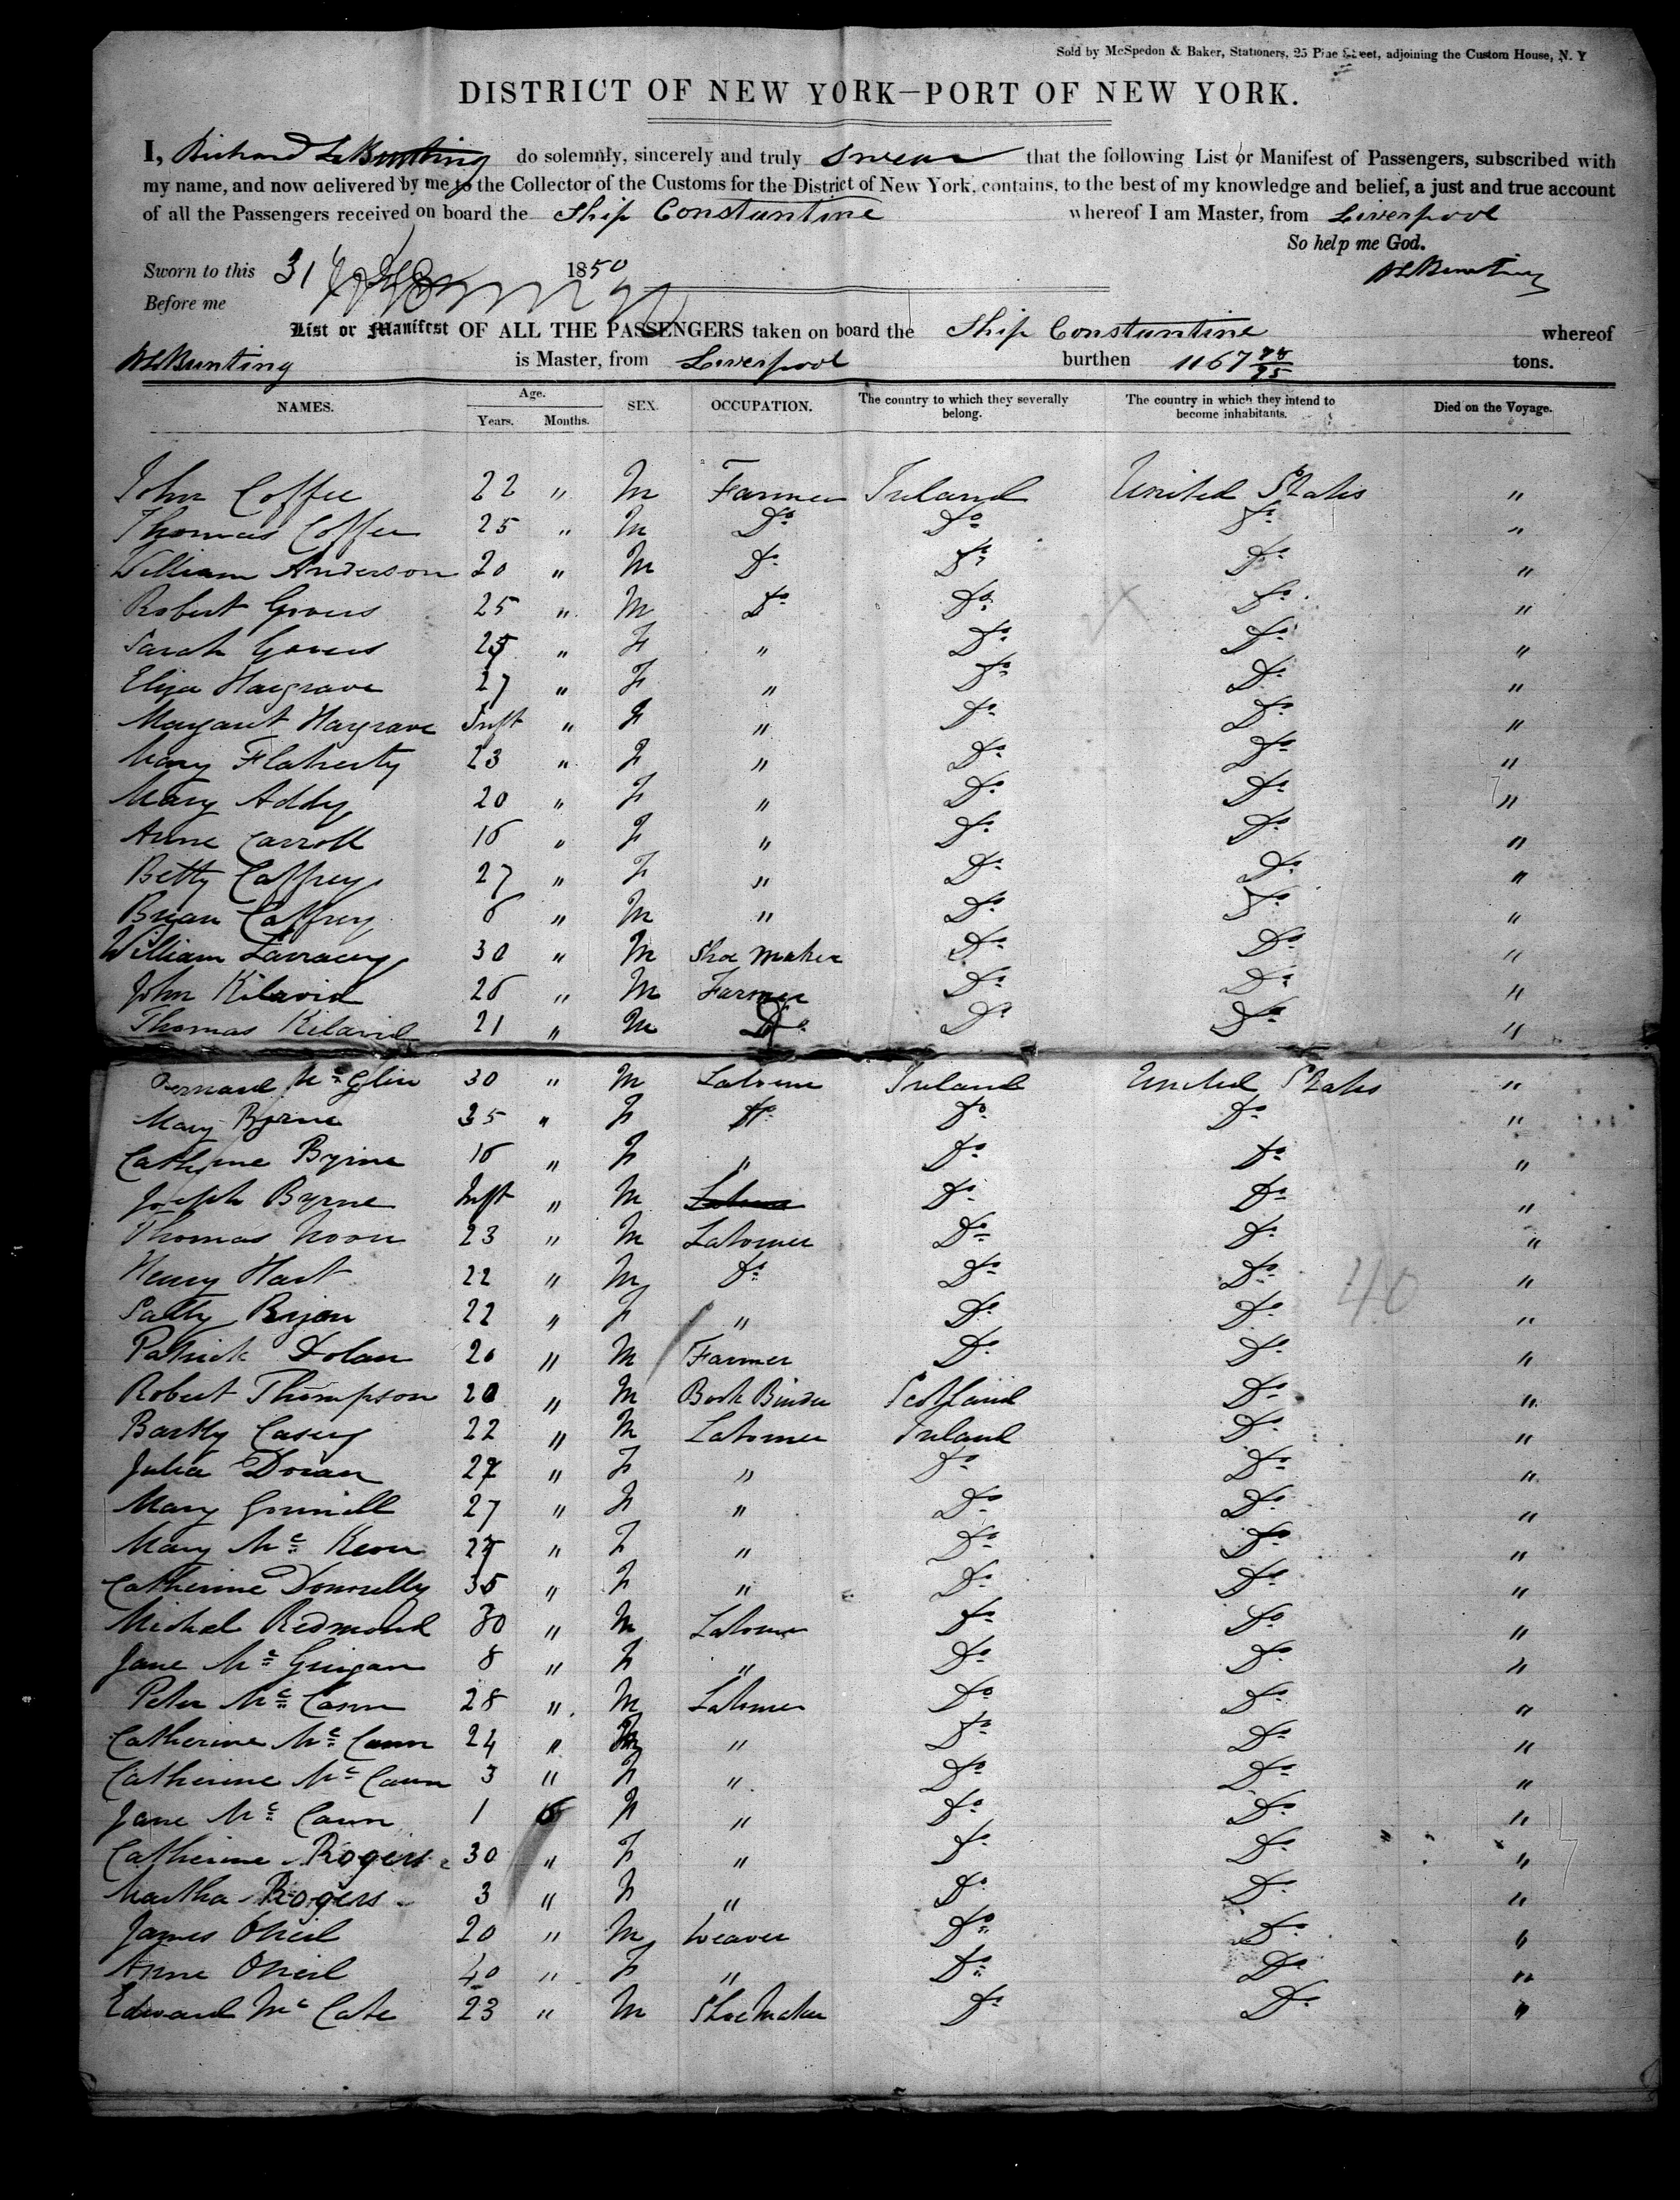 Sold by McSpedon & Baker, Stationers, 25 Pine Street, adjoining the Custom House, N. Y
DISTRICT OF NEW YORK—PORT OF NEW YORK.
I, Richard L Bunting do solemnly, sincerely and truly swear that the following List or Manifest of Passengers, subscribed with
my name, and now delivered by me to the Collector of the Customs for the District of New York, contains, to the best of my knowledge and belief, a just and true account
of all the Passengers received on board the Ship Constantine whereof I am Master, from Liverpool
So help me God.
Sworn to this 31 1850 RL Bunting
Before me
List or Manifest OF ALL THE PASSENGERS taken on board the Ship Constantine whereof
RL Bunting is Master, from Liverpool burthen 1167 tons.
NAMES. Age. Years. Months. SEX. OCCUPATION. The country to which they severally belong. The country in which they intend to become inhabitants. Died on the Voyage.
John Coffee 22 " M Farmer Ireland United States "
Thomas Coffee 25 " M Do Do Do "
William Anderson 20 " M Do Do Do "
Robert 25 " M Do Do Do "
Sarah " F " Do Do "
Eliza Hargrave 27 " F " Do Do "
Margaret Hargrave Inft " F " Do Do "
Mary Flaherty 23 " F " Do Do "
Mary Addy 20 " F " Do Do "
Anne Carroll 16 " F " Do Do "
Betty Caffrey 27 " F " Do Do "
Brian Caffrey 6 " M " Do Do "
William 30 " M Shoe Maker Do Do "
John 26 " M Farmer Do Do "
Thomas 21 " M Do Do Do "
Bernard Mc Glin 30 " M Laborer Ireland United States "
Mary Byrne 35 " F Do Do "
Catherine Byrne 16 " F " Do Do "
Joseph Byrne Inft " M Do Do "
Thomas Noon 23 " M Laborer Do Do "
Henry Hart 22 " M Do Do Do "
Sally 22 " F " Do Do "
Patrick Dolan 20 " M Farmer Do Do "
Robert Thompson 20 " M Book Binder Scotland Do "
Bartly Casey 22 " M Laborer Ireland Do "
Julia Doran " F " Do Do "
Mary 27 " F " Do Do "
Mary Mc Keon " F " Do Do "
Catherine Donnelly 35 " F " Do Do "
Michael Redmond 30 " M Laborer Do Do "
Jane Mc Guigan 8 " F " Do Do "
Peter Mc Cann 28 " M Laborer Do Do "
Catherine Mc Cann 24 " " Do Do "
Catherine Mc Cann 3 " F " Do Do "
Jane Mc Cann 1 6 F " Do Do "
Catherine Rogers 30 " F " Do Do "
Martha Rogers 3 " F " Do Do "
James ONeil 20 " M Weaver Do Do "
Anne ONeil 40 " F " Do Do "
Edward Mc Cabe 23 " M Shoe Maker Do Do "
40